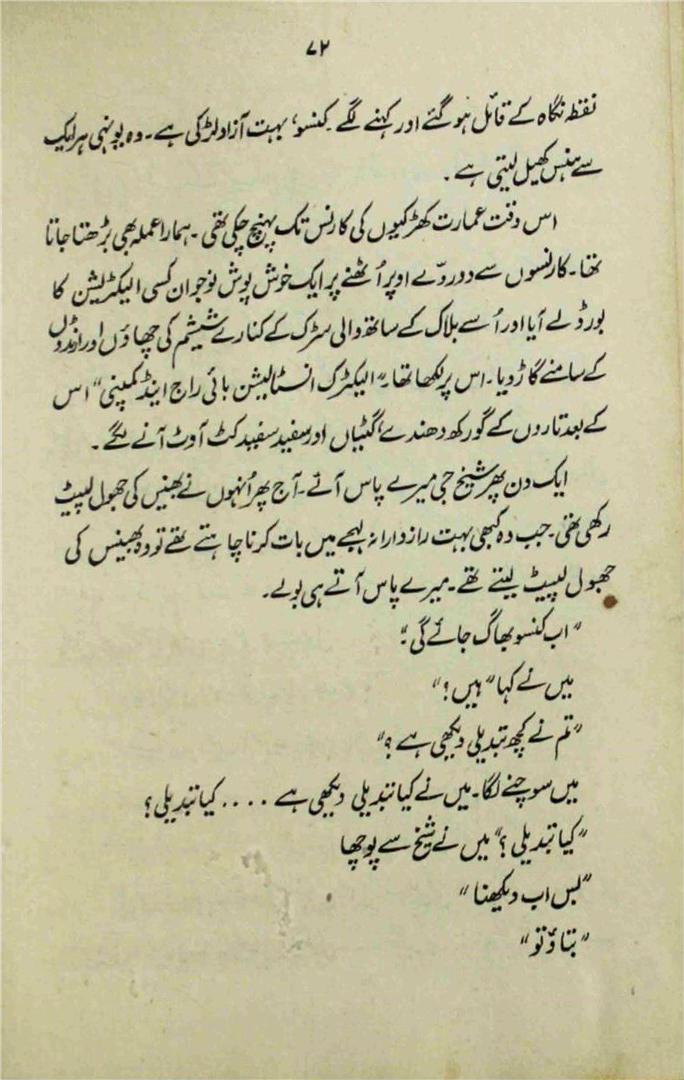 ۷۲
نقطہ نگاہ کے قائل ہو گئے اور کہنے لگے۔ کنسو، بہت آزاد لڑکی ہے۔ وہ یونہی ہر ایک
سے ہنس کھیل لیتی ہے۔
اس وقت عمارت کھڑکیوں کی کارنس تک پہنچ چکی تھی۔ ہمارا عملہ بھی بڑھتا جاتا
تھا۔ کارنسوں سے دو ردّے اوپر اُٹھنے پر ایک خوش پوش نوجوان کسی الیکٹریشن کا
بورڈ لے آیا اور اُسے بلاک کے ساتھ والی سڑک کے کنارے شیشم کی چھاؤں اور
کے سامنے گاڑ دیا۔ اس پر لکھا تھا۔ "الیکٹرک انسٹالیشن بائی راج اینڈ کمپنی" اس
کے بعد تاروں کے گورکھ دھندے، گٹیاں اور سفید سفید کٹ آوٹ آنے لگے۔
ایک دن پھر شیخ جی میرے پاس آئے۔ آج پھر اُنہوں نے بھنیس کی جھول لپیٹ
رکھی تھی۔ جب وہ کبھی بہت رازدارانہ لہجے میں بات کرنا چاہتے تھے تو وہ بھینس کی
جھول لپیٹ لیتے تھے۔ میرے پاس آتے ہی بولے۔
"اب کنسو بھاگ جائے گی!"
میں نے کہا "ہیں؟"
"تم نے کچھ تبدیلی دیکھی ہے؟"
میں سوچنے لگا۔ میں نے کیا تبدیلی دیکھی ہے .... کیا تبدیلی؟
"کیا تبدیلی؟" میں نے شیخ سے پوچھا
"بس اب دیکھنا"
"بتاؤ تو"